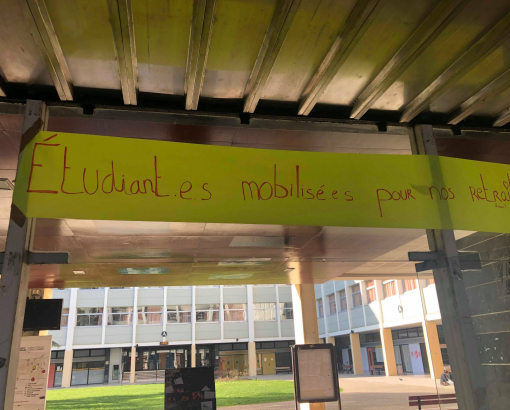 Étudiant.e.s mobilisé.e.s pour nos retrai